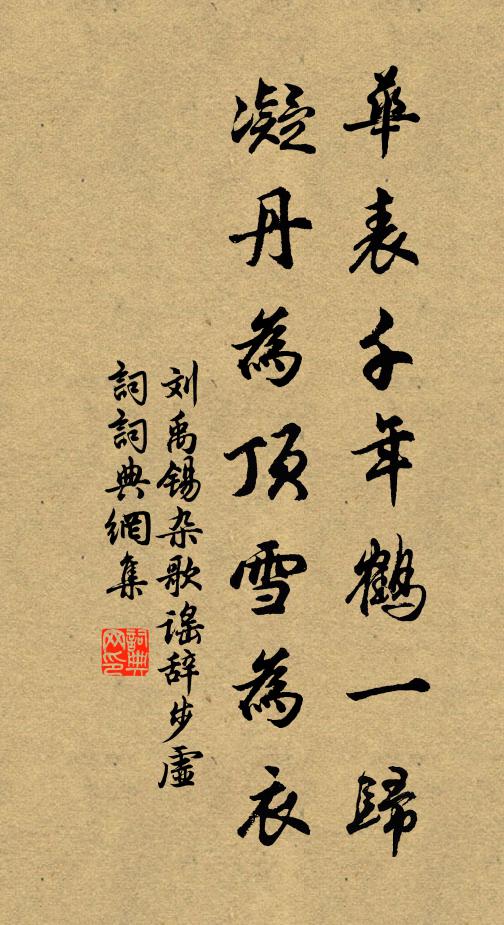 華表千年鶴一歸
凝丹為頂雪為衣
刘禹锡杂歌谣辞步虚
詞詞典網集
詞典
网印